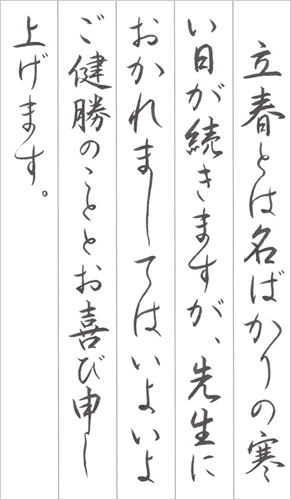 立春とは名ばかりの寒
い日が続きますが、先生に
おかれましてはいよいよ
ご健勝のこととお喜び申し
上げます。